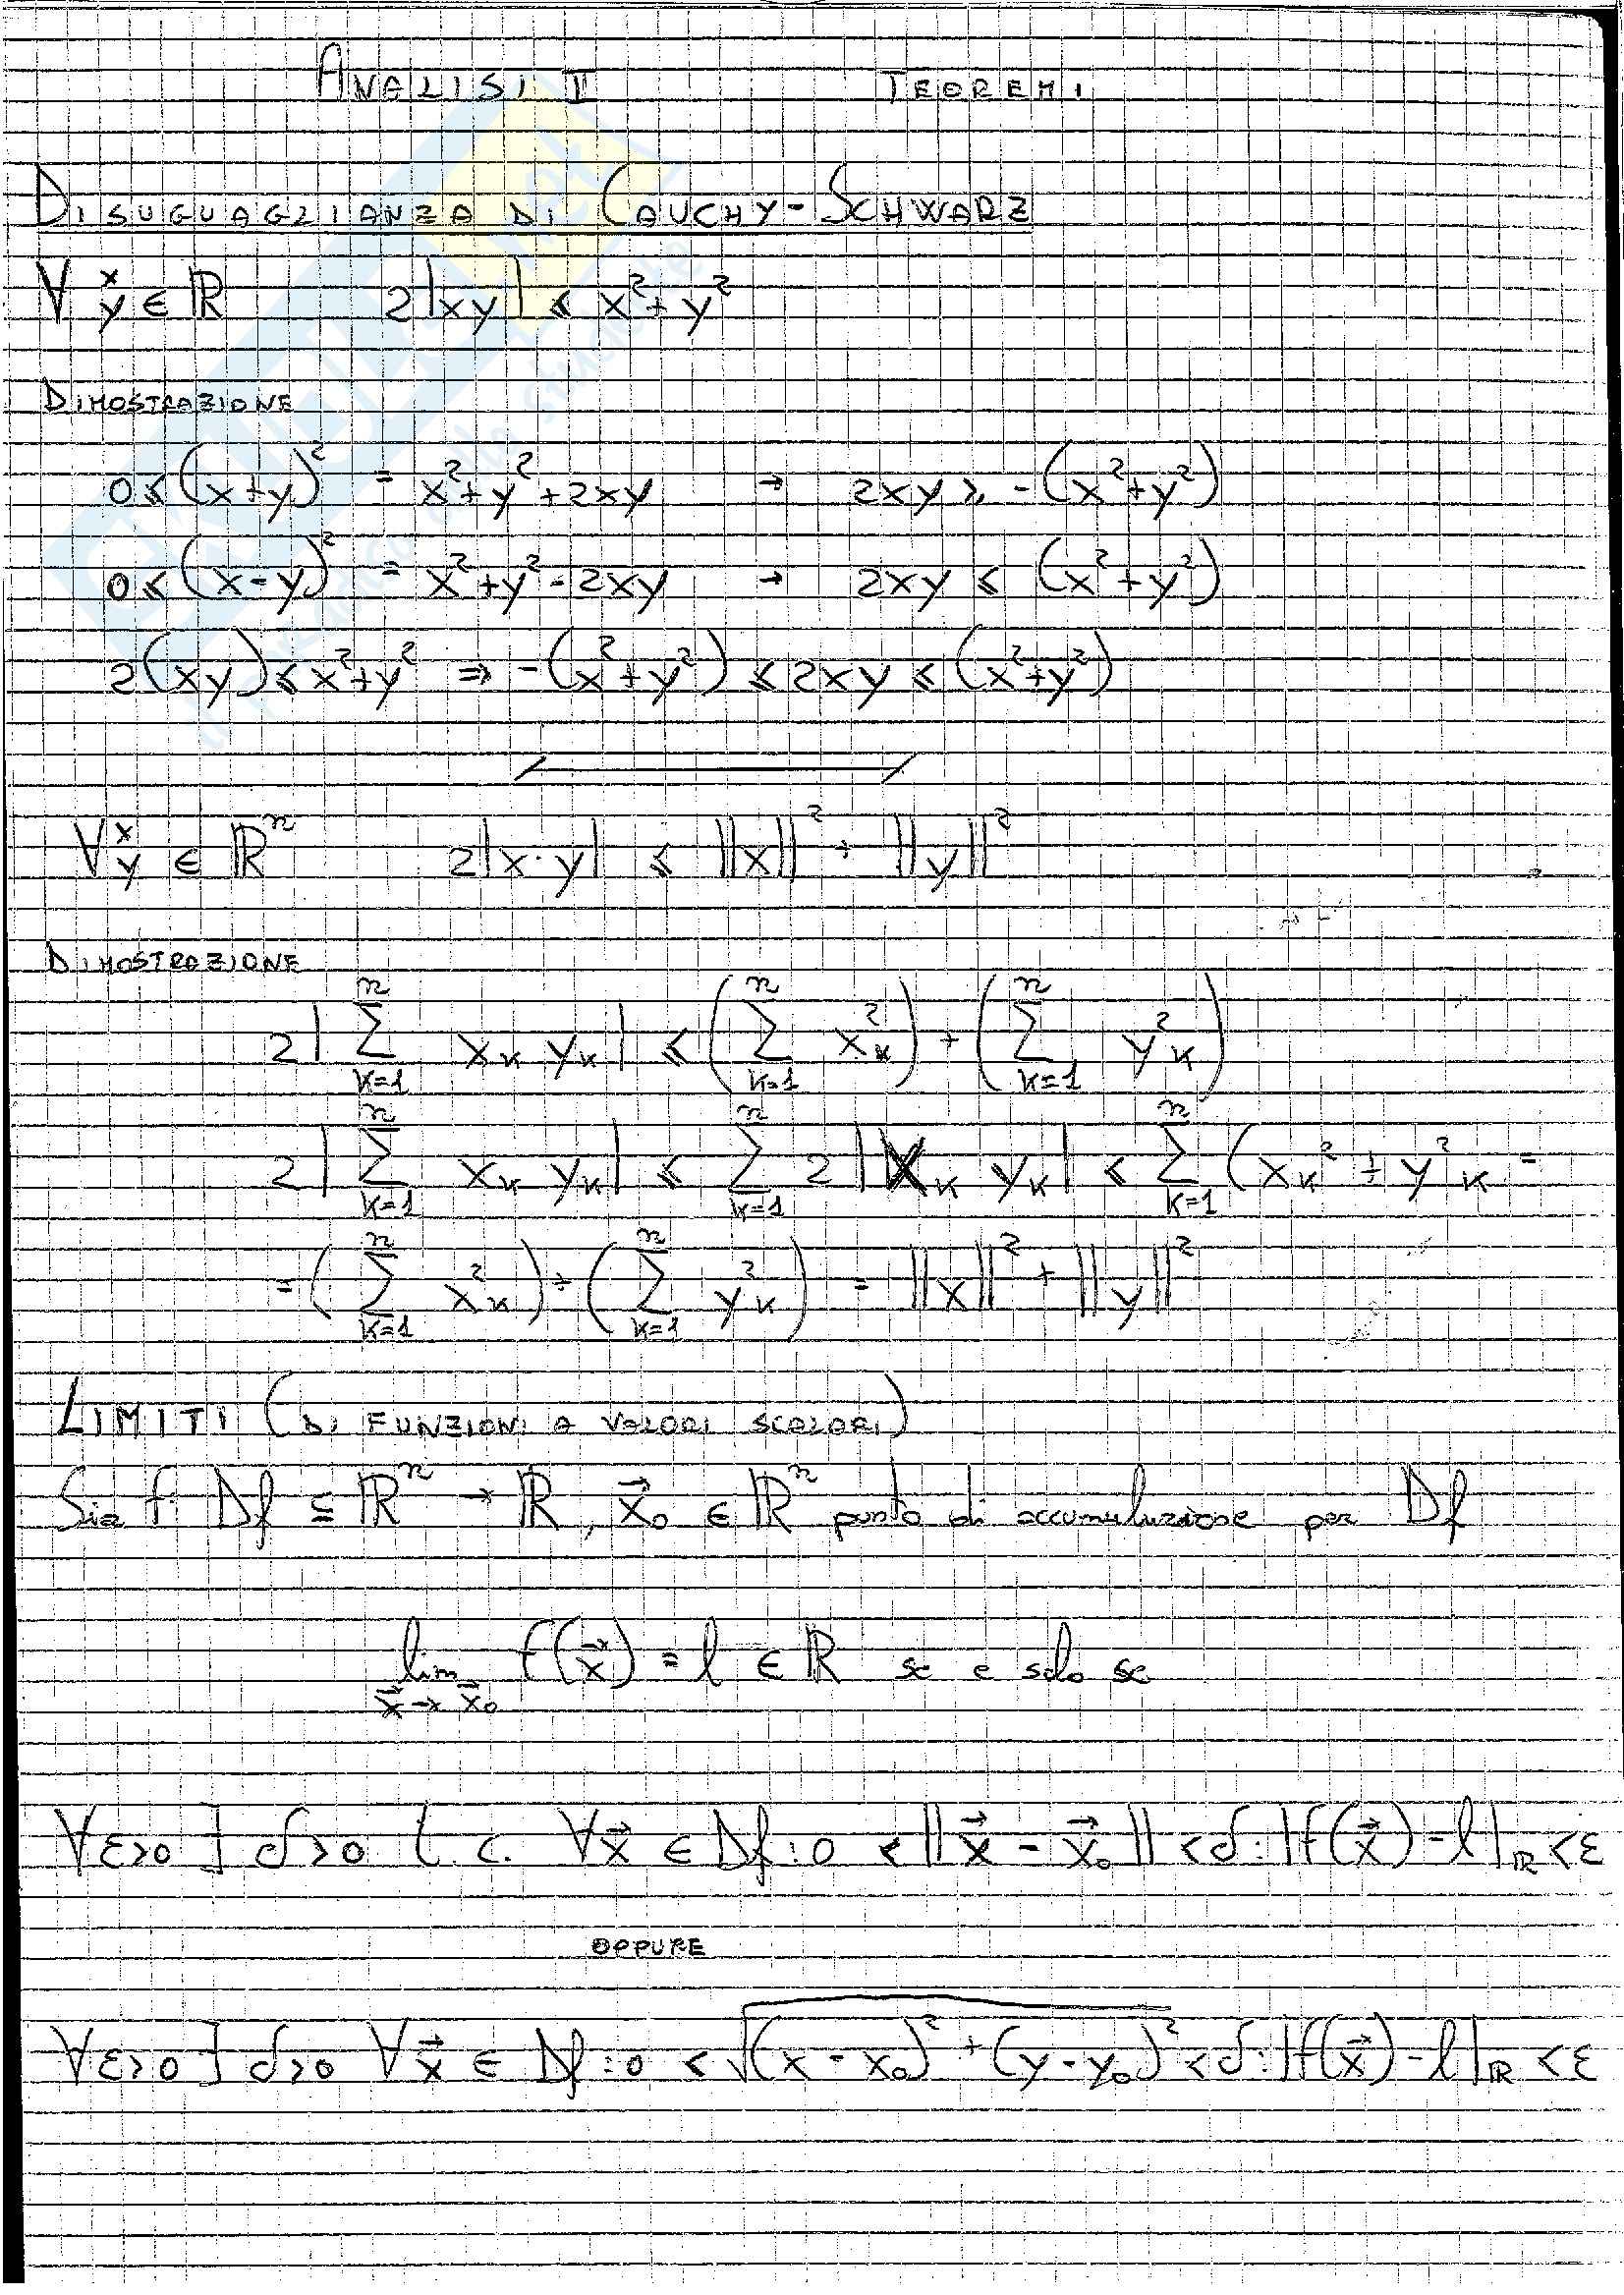 ANALISI II TEOREMI
DISUGUAGLIANZA DI CAUCHY-SCHWARZ
∀ x y ∈ ℝ 2|xy| ≤ x² + y²
DIMOSTRAZIONE
0 ≤ (x+y)² = x² + y² + 2xy → 2xy ≥ -(x²+y²)
0 ≤ (x-y)² = x² + y² - 2xy → 2xy ≤ (x²+y²)
2(xy) ≤ x²+y² ⇒ -(x²+y²) ≤ 2xy ≤ (x²+y²)
∀ x y ∈ ℝⁿ 2|x·y| ≤ ||x||² + ||y||²
DIMOSTRAZIONE
2|∑_{k=1}^{n} x_k y_k| ≤ (∑_{k=1}^{n} x_k²) + (∑_{k=1}^{n} y_k²)
2|∑_{k=1}^{n} x_k y_k| ≤ ∑_{k=1}^{n} 2|x_k y_k| ≤ ∑_{k=1}^{n} (x_k² + y²_k =
= (∑_{k=1}^{n} x_k²) + (∑_{k=1}^{n} y_k²) = ||x||² + ||y||²
LIMITI (DI FUNZIONI A VALORI SCALARI)
Sia f: Df ⊆ ℝⁿ → ℝ, x⃗₀ ∈ ℝⁿ punto di accumulazione per Df
lim_{x⃗→x⃗₀} f(x⃗) = l ∈ ℝ se e solo se
∀ε>0 ∃ δ>0 t.c. ∀x⃗ ∈ Df : 0 < ||x⃗ - x⃗₀|| < δ : |f(x⃗) - l|_ℝ < ε
OPPURE
∀ε>0 ∃ δ>0 ∀x⃗ ∈ Df : 0 < √((x-x₀)² + (y-y₀)²) < δ : |f(x⃗) - l|_ℝ < ε